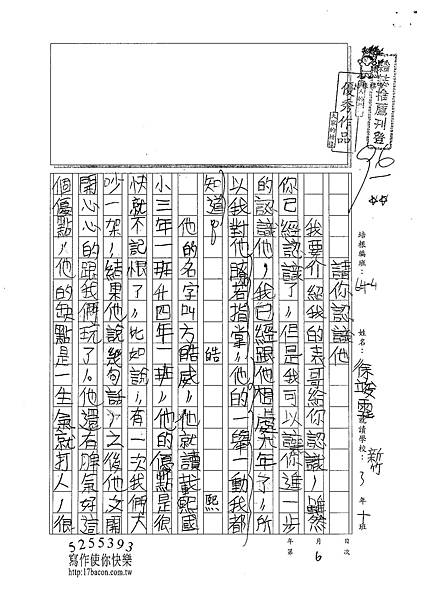 優秀作品
96
培根編班：
姓名：徐
就讀學校：新竹
3年十班
6月
第 次
年 日
請你認識他
我要介紹我的表哥給你認識，雖然
你已經認識了，但是我可以讓你進一步
的認識他，我已經跟他相處九年了，所
以我對他瞭若指掌，他的一舉一動我都
知道。
他的名字叫方皓威，他就讀載熙國
皓 熙
小三年一班升四年一班，他的優點是很
快就不記恨了，比如說，有一次我們大
吵一架，結果他說幾句話，之後他又開
開心心的跟我們玩了。他還有脾氣好這
個優點，他的缺點是一生氣就打人，很
5255393
寫作使你快樂
http://17bacon.com.tw